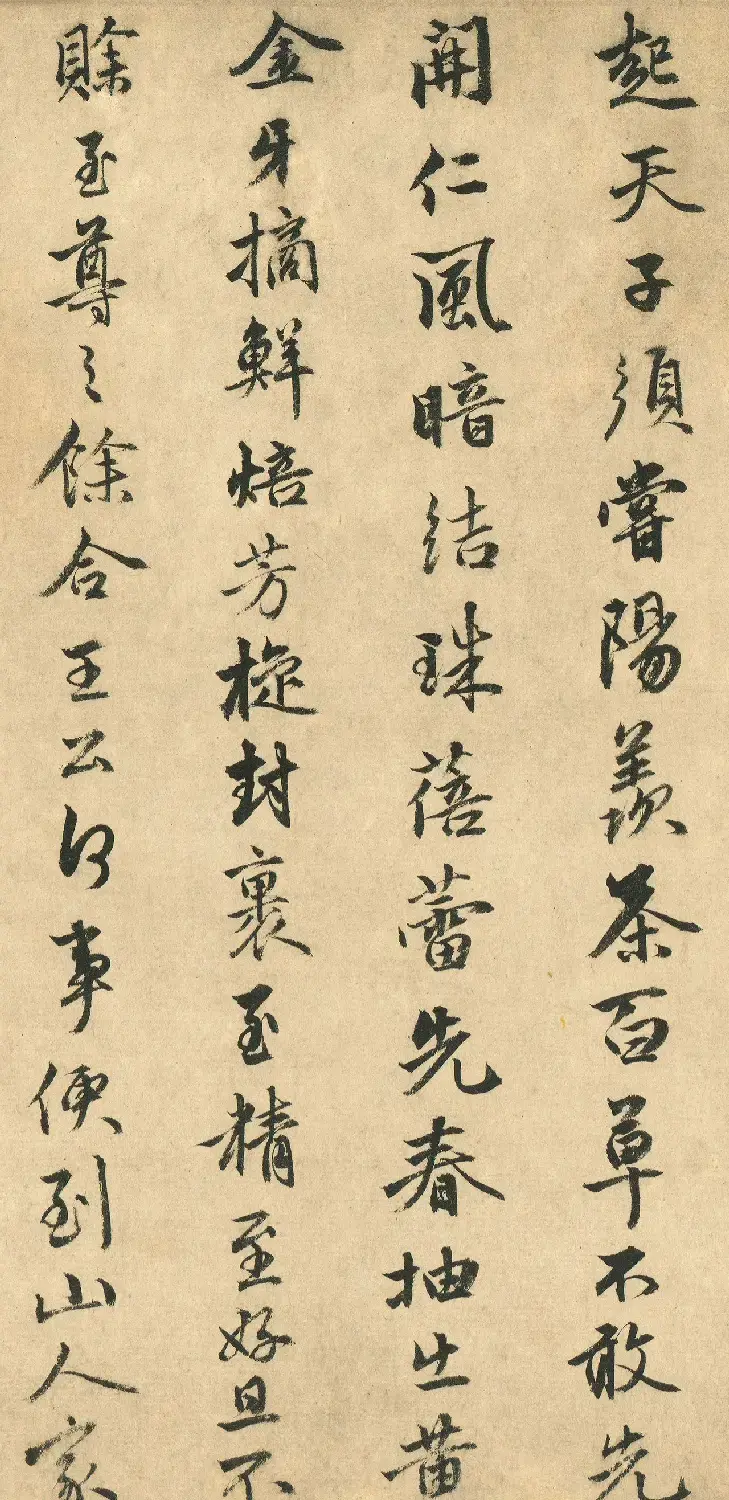 起天子須嘗陽羨茶百草不敢先
開仁風暗結珠蓓蕾先春抽出黄
金牙摘鮮焙芳旋封裹至精至好且不
賖至尊之餘合王公何事便到山人家